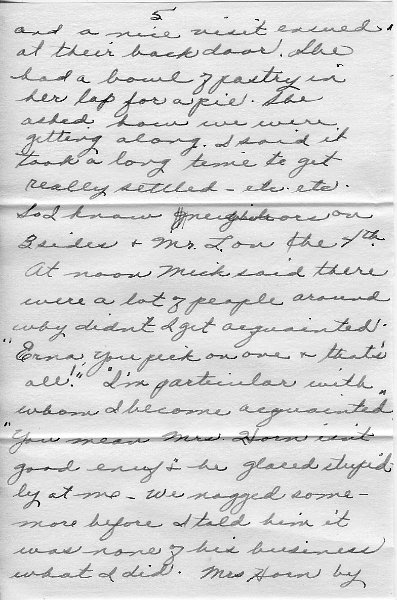 5
and a nice visit ensued
at their back door. She
had a bowl of pastry in
her lap for a pie. She
asked how we were
getting along. I said it
took a long time to get
really settled - etc. etc.
So I know neighbors on
3 sides + Mr. L. on the 4th.
At noon Mick said there
were a lot of people around
why didn't I get acquainted.
"Erna, you pick on one + that's
all!" "I'm particular with
whom I become acquainted"
"You mean Mrs Horn isn't
good enuf" + he glared stupid-
ly at me - We nagged some-
more before I told him it
was none of his business
what I did. Mrs Horn by